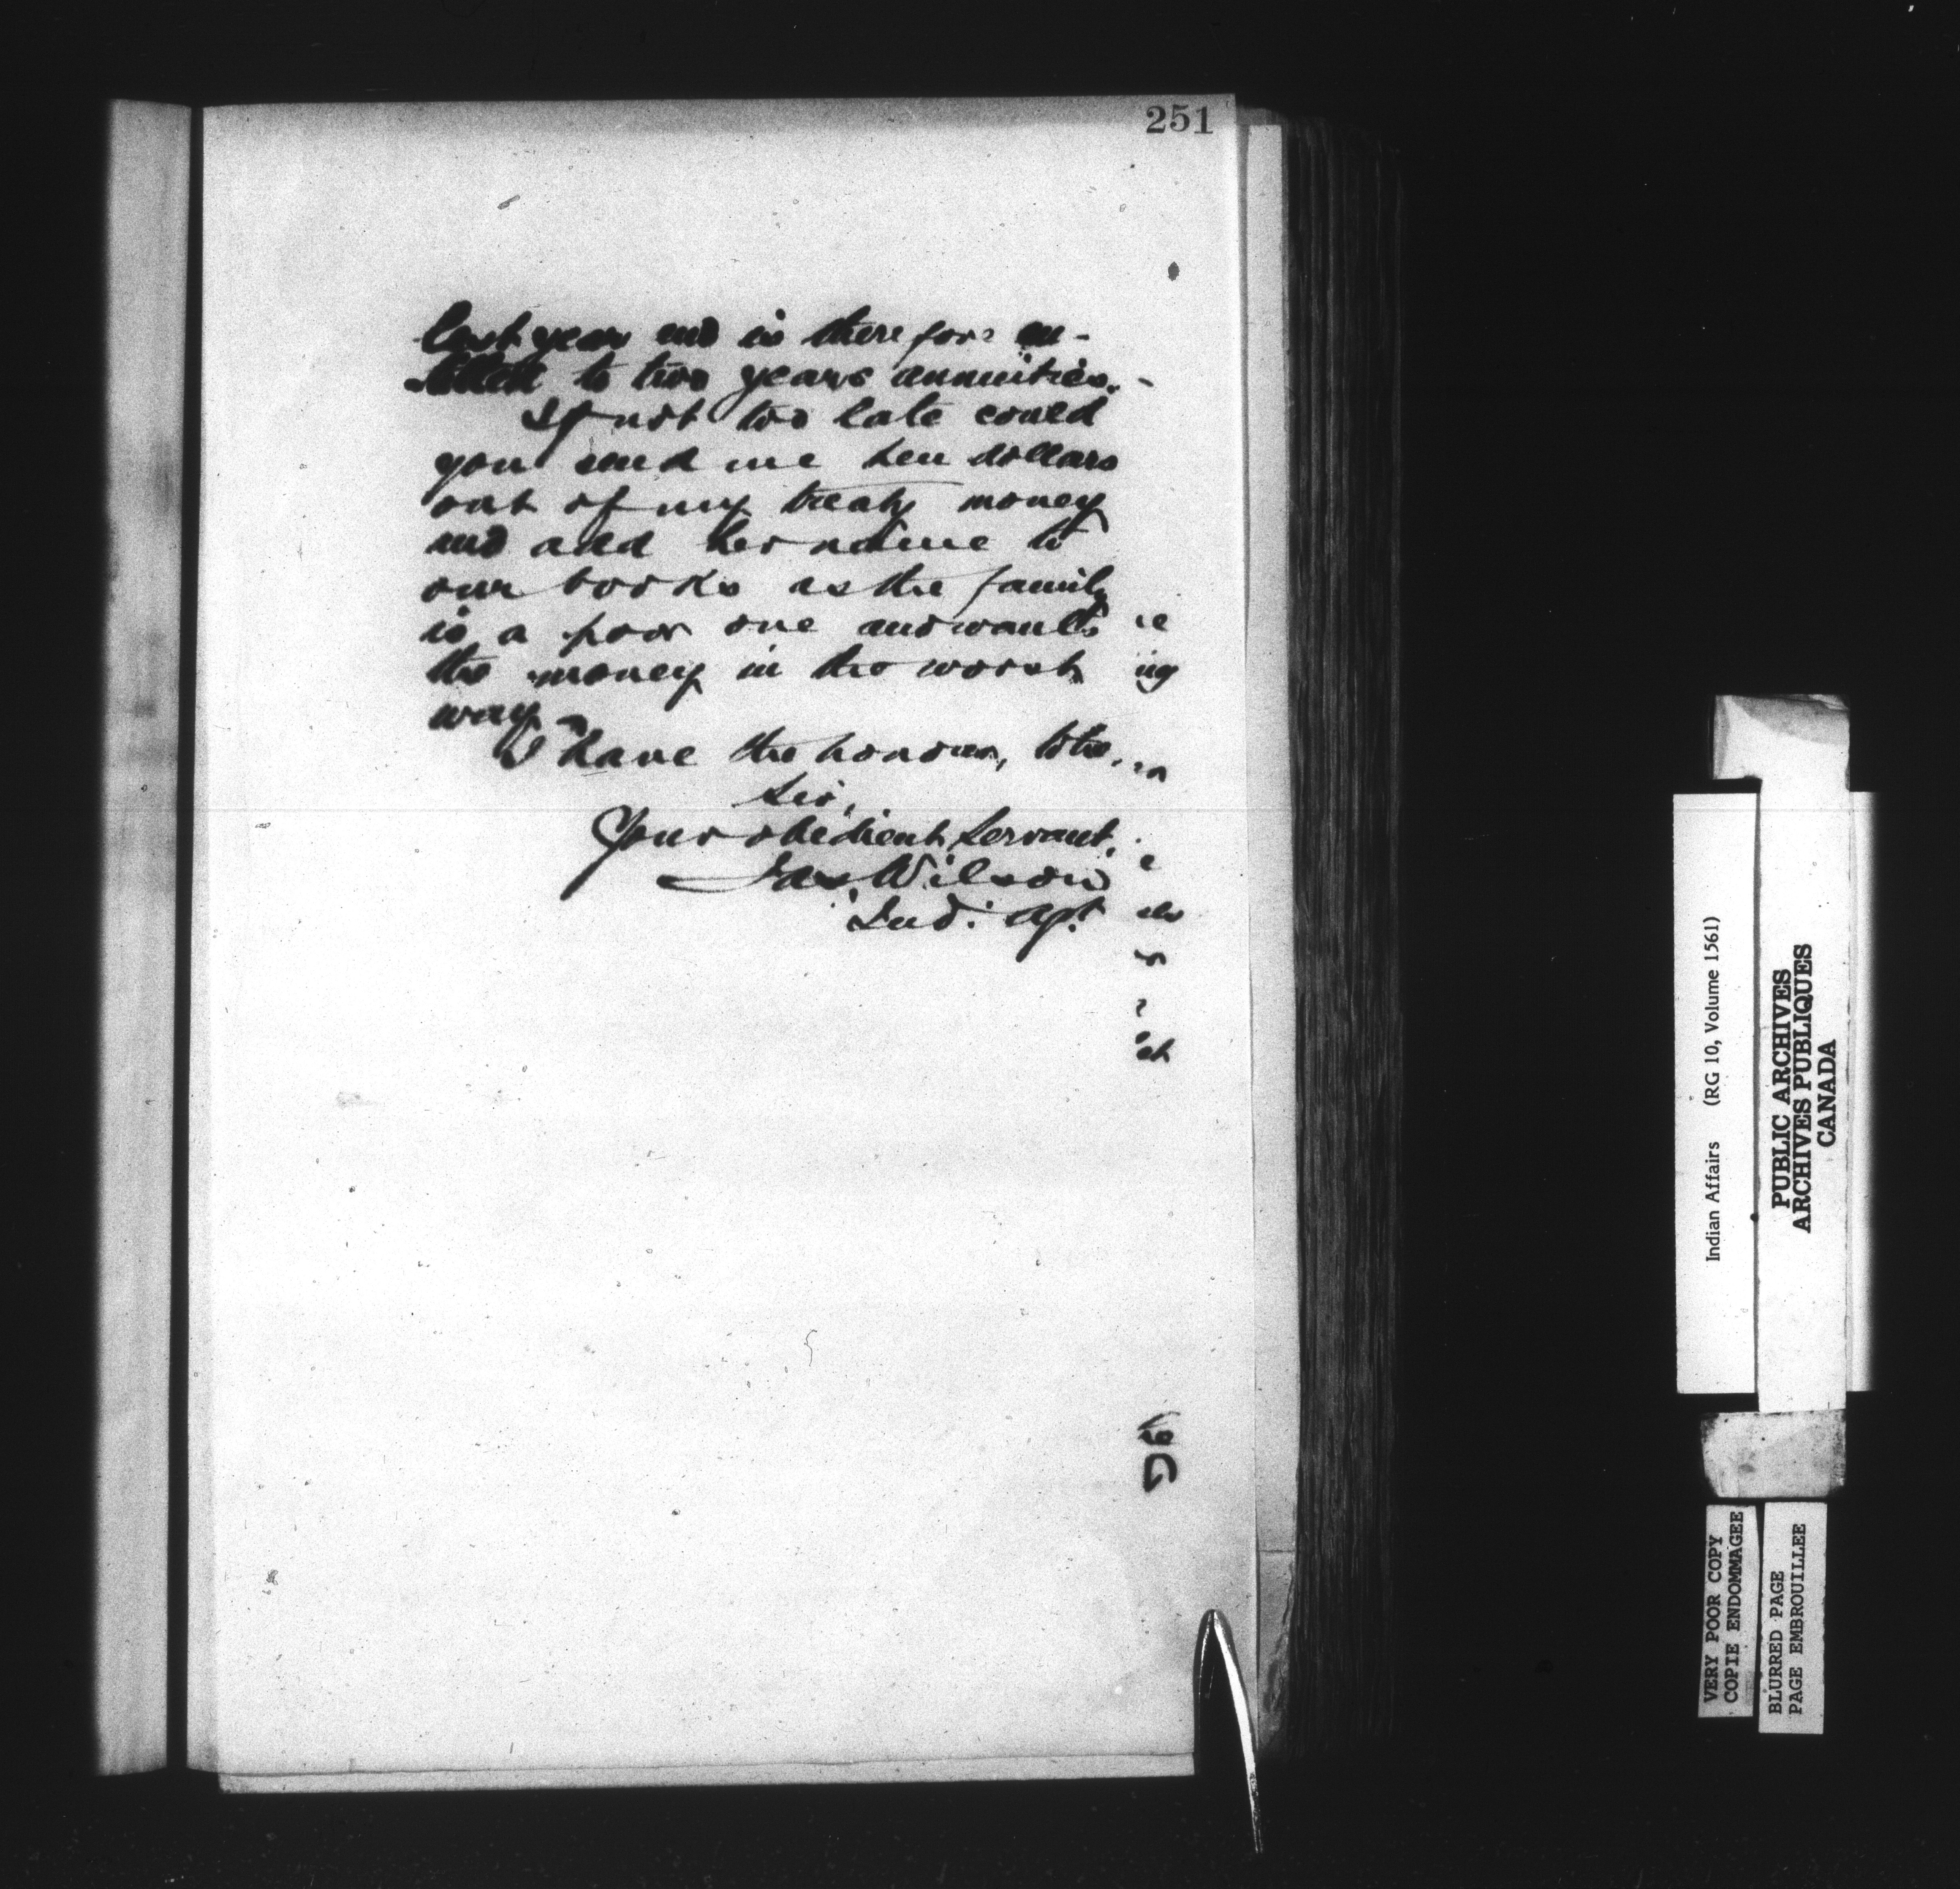 251
last year and is therefore en-
titled to two years annuities. -
If not too late could
you send me ten dollars
out of my treaty money
and add her name to
our books as the family
is a poor one and wants
the money in the worst
way -
I have the honour, to be,
Sir,
Your obedient Servant,
Jas. Wilson
Ind: Agt
Indian Affairs (RG 10, Volume 1561)
PUBLIC ARCHIVES
ARCHIVES PUBLIQUES
CANADA
VERY POOR COPY
COPIE ENDOMMAGEE
BLURRED PAGE
PAGE EMBROUILLEE